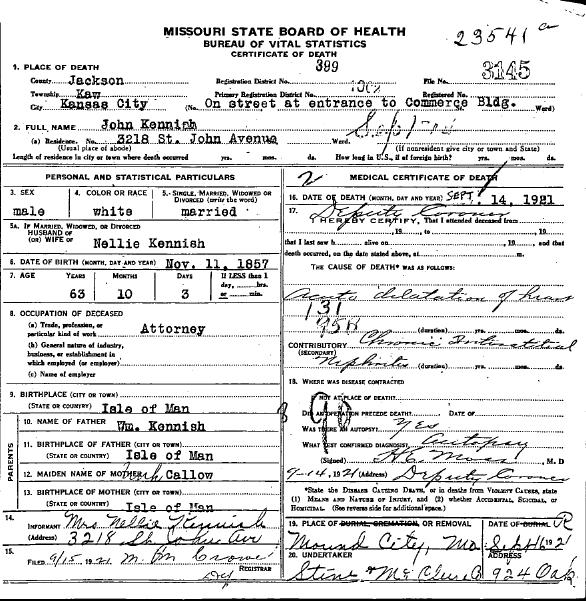 23541
MISSOURI STATE BOARD OF HEALTH
BUREAU OF VITAL STATISTICS
CERTIFICATE OF DEATH
1. PLACE OF DEATH 399
County Jackson Registration District No. File No. 3145
Township Kaw Primary Registration District No. 1002 Registered No.
City Kansas City (No. On street at entrance to Commerce Bldg. Ward)
2. FULL NAME John Kennish
(a) Residence. No. 3218 St. John Avenue Ward.
(Usual place of abode) (If nonresident give city or town and State)
Length of residence in city or town where death occurred yrs. mos. ds. How long in U.S., if of foreign birth? yrs. mos. ds.
PERSONAL AND STATISTICAL PARTICULARS
3. SEX 4. COLOR OR RACE 5. SINGLE, MARRIED, WIDOWED OR DIVORCED (write the word)
male white married
5a. IF MARRIED, WIDOWED, OR DIVORCED
HUSBAND OF
(OR) WIFE OF Nellie Kennish
6. DATE OF BIRTH (MONTH, DAY AND YEAR) Nov. 11, 1857
7. AGE YEARS MONTHS DAYS If LESS than 1 day, hrs. or min.
63 10 3
8. OCCUPATION OF DECEASED
(a) Trade, profession, or
particular kind of work Attorney
(b) General nature of industry,
business, or establishment in
which employed (or employer)
(c) Name of employer
9. BIRTHPLACE (CITY OR TOWN)
(STATE OR COUNTRY) Isle of Man
PARENTS
10. NAME OF FATHER Wm. Kennish
11. BIRTHPLACE OF FATHER (CITY OR TOWN)
(STATE OR COUNTRY) Isle of Man
12. MAIDEN NAME OF MOTHER Callow
13. BIRTHPLACE OF MOTHER (CITY OR TOWN)
(STATE OR COUNTRY) Isle of Man
14.
INFORMANT Mrs Nellie Kennish
(Address) 3218 St John Ave
15.
FILED 9/15 1921 M. M. Crowe
REGISTRAR
2 MEDICAL CERTIFICATE OF DEATH
16. DATE OF DEATH (MONTH, DAY AND YEAR) SEPT. 14, 1921
17. Deputy Coroner
I HEREBY CERTIFY, That I attended deceased from
, 19 , to , 19
that I last saw h alive on , 19 , and that
death occurred, on the date stated above, at m.
THE CAUSE OF DEATH* WAS AS FOLLOWS:
Acute dilatation of heart
131
95B
(duration) yrs. mos. ds.
CONTRIBUTORY Chronic Interstitial
(SECONDARY) Nephritis (duration) yrs. mos. ds.
18. WHERE WAS DISEASE CONTRACTED
IF NOT AT PLACE OF DEATH?
90
DID AN OPERATION PRECEDE DEATH? DATE OF
WAS THERE AN AUTOPSY? Yes
WHAT TEST CONFIRMED DIAGNOSIS? Autopsy
(Signed) , M. D
9-14, 1921 (Address) Deputy Coroner
*State the DISEASE CAUSING DEATH, or in deaths from VIOLENT CAUSES, state
(1) MEANS AND NATURE OF INJURY, and (2) whether ACCIDENTAL, SUICIDAL, or
HOMICIDAL. (See reverse side for additional space.)
19. PLACE OF BURIAL, CREMATION, OR REMOVAL DATE OF BURIAL R
Mound City, Mo Sept 16 1921
20. UNDERTAKER ADDRESS
Stine & McClure 924 Oak